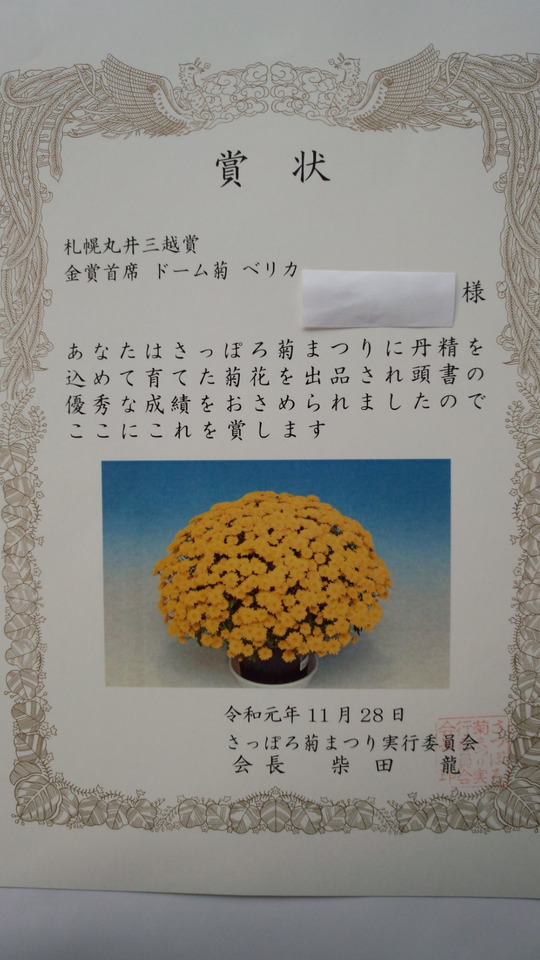 賞 状
札幌丸井三越賞
金賞首席 ドーム菊 ベリカ
様
あなたはさっぽろ菊まつりに丹精を
込めて育てた菊花を出品され頭書の
優秀な成績をおさめられましたので
ここにこれを賞します
令和元年11月28日
さっぽろ菊まつり実行委員会
会長 柴田 龍